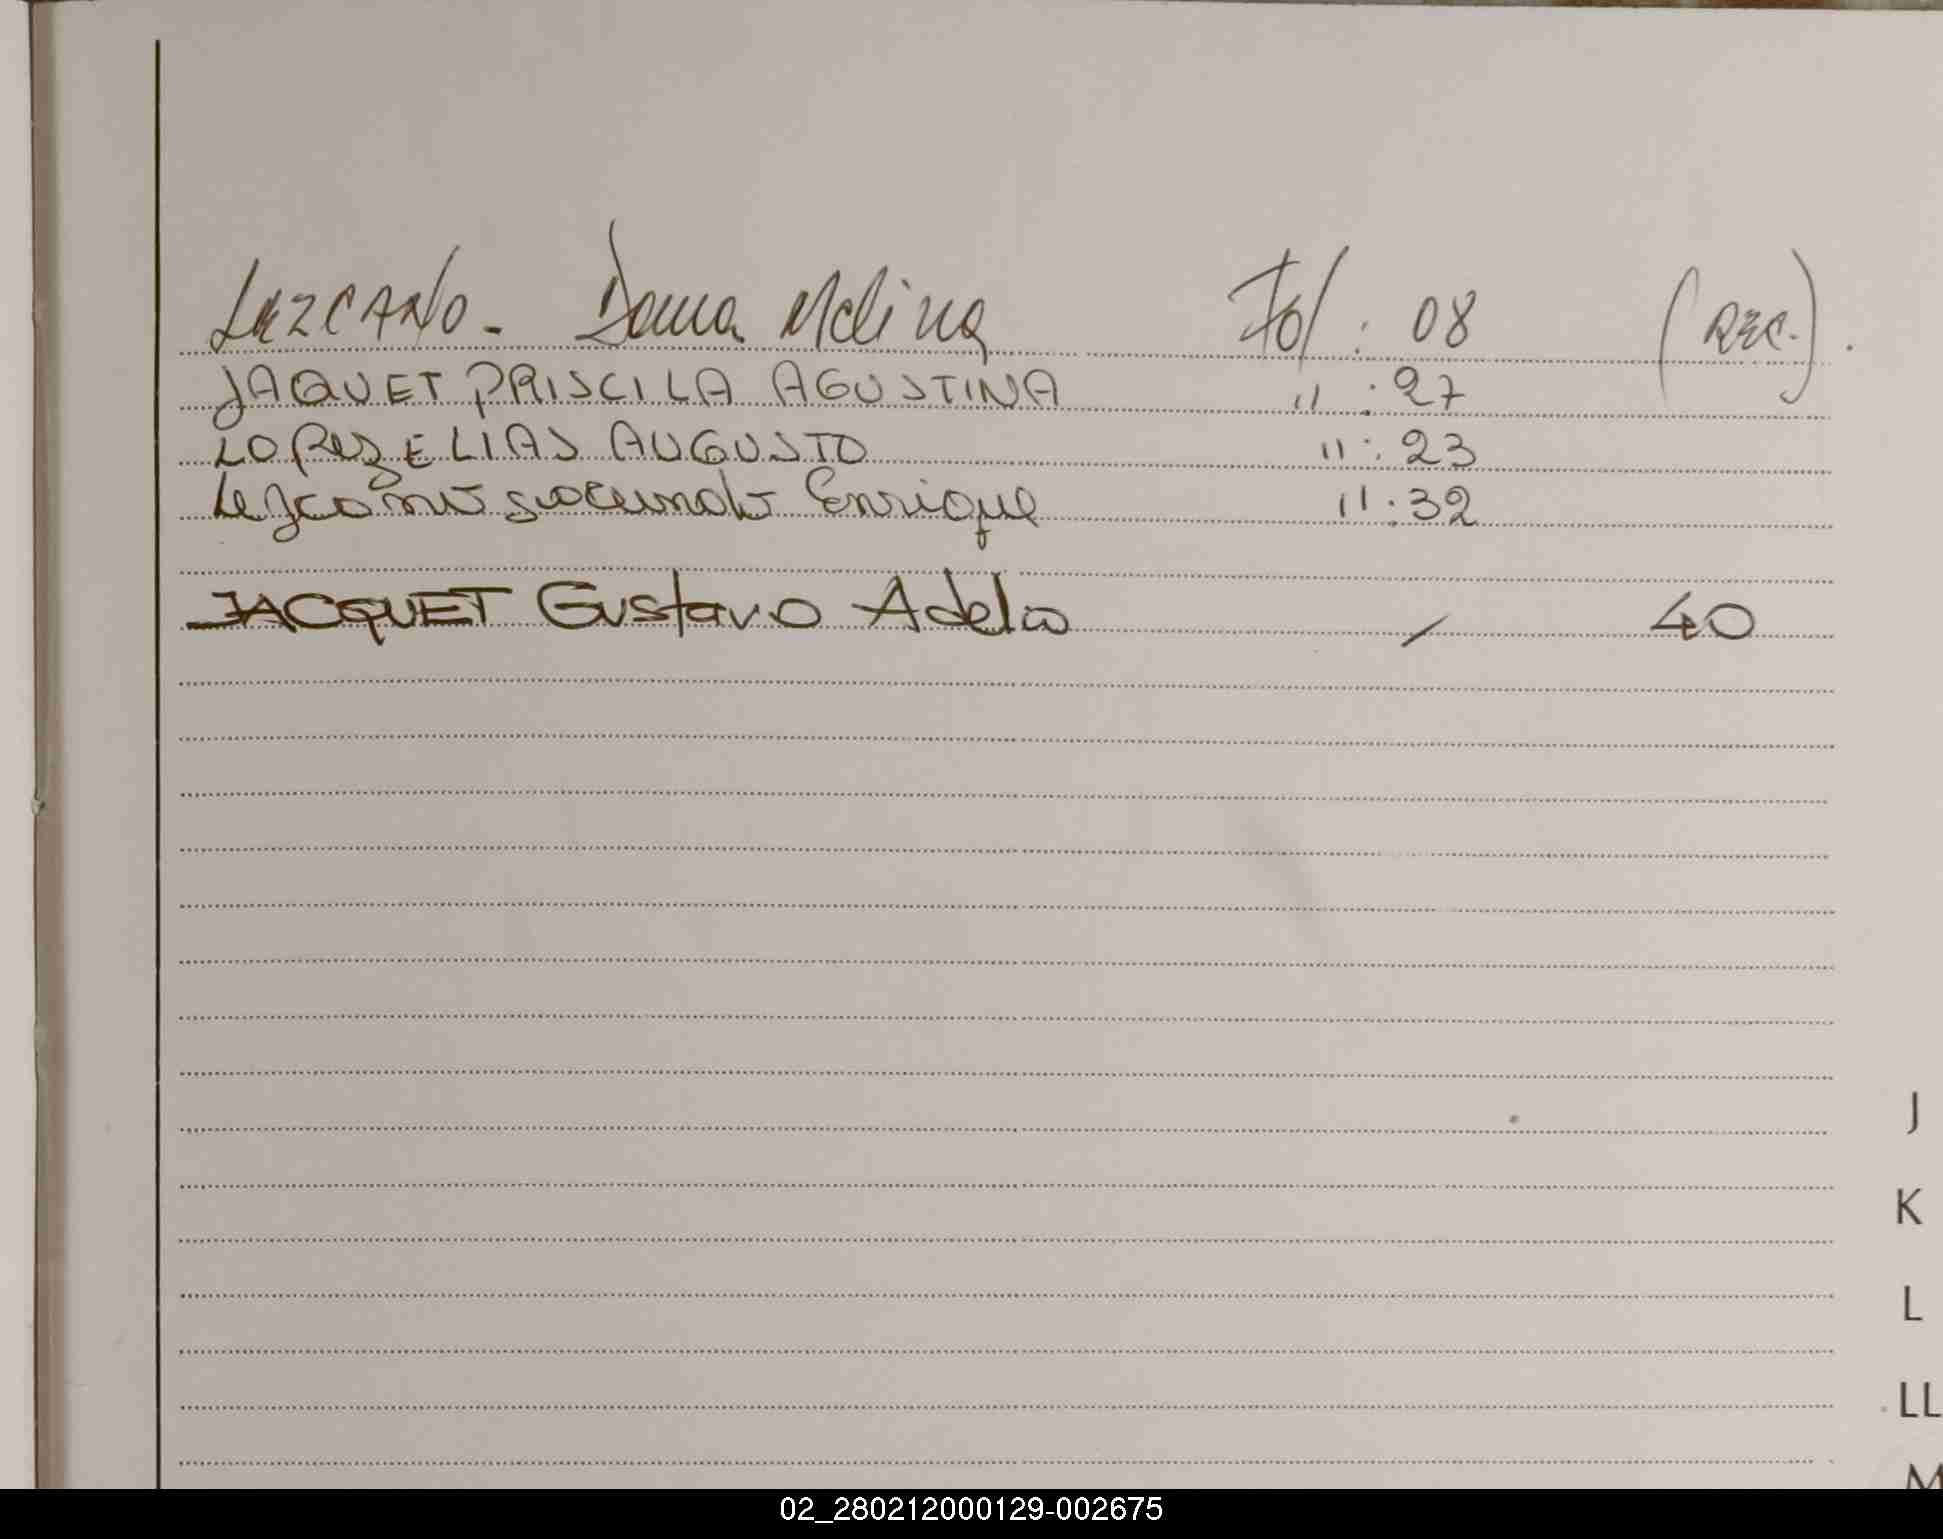 LEZCANO - Daiua Melina Fol : 08 (REC.).
JAQUET PRISCILA AGUSTINA " : 27
LOPEZ ELIAS AUGUSTO " : 23
Lezcano Enrique " : 32
JACQUET Gustavo Adelio / 40
J
K
L
LL
M
02_280212000129-002675